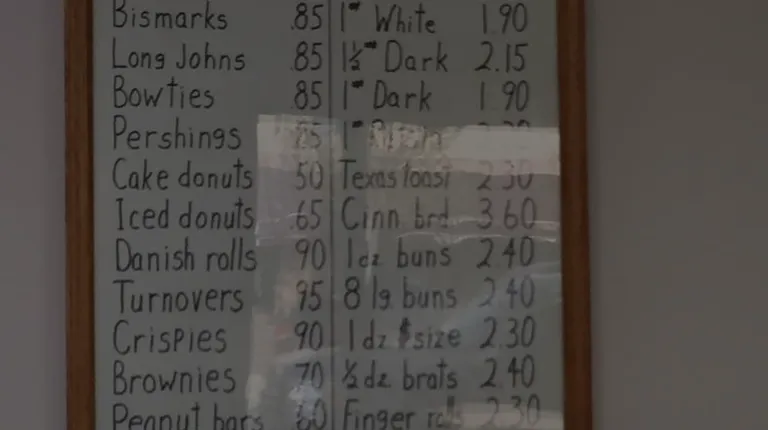 Bismarks .85 1# White 1.90
Long Johns .85 1½# Dark 2.15
Bowties .85 1# Dark 1.90
Pershings .85 1#
Cake donuts 50 Texas toast 2.30
Iced donuts .65 Cinn brd. 3.60
Danish rolls 90 1dz buns 2.40
Turnovers 95 8 lg. buns 2.40
Crispies 90 1dz $size 2.30
Brownies 70 ½dz brats 2.40
Peanut bars 60 Finger rolls 2.30